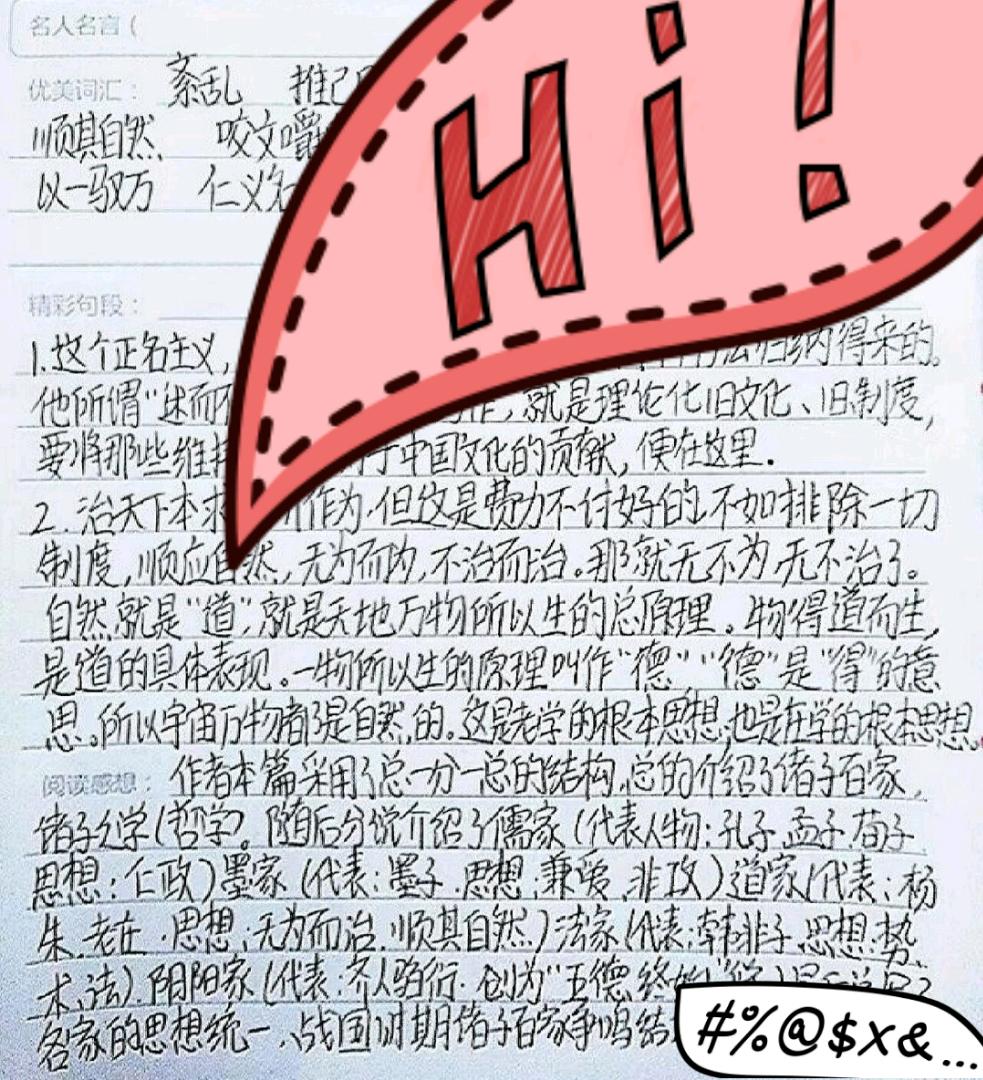 名人名言(
优美词汇： 紊乱 推己
顺其自然 咬文嚼
以一驭万 仁义
Hi!
精彩句段：
1.这个正名主义, 归纳得来的。
他所谓“述而 , 就是理论化旧文化、旧制度,
要将那些维 于中国文化的贡献, 便在这里.
2. 治天下本求 所作为.但这是费力不付好的.不如排除一切
制度, 顺应自然, 无为而为, 不治而治。那就无不为,无不治了。
自然就是“道”,就是天地万物所以生的总原理。物得道而生,
是道的具体表现。一物所以生的原理叫作“德”“德”是“得”的意
思。所以宇宙万物都是自然的。这是老学的根本思想,也是庄学的根本思想。
阅读感想： 作者本篇采用了总一分一总的结构,总的介绍了诸子百家,
诸子之学(哲学)。随后分说介绍了儒家(代表人物:孔子.孟子.荀子
思想:仁政)墨家(代表:墨子.思想.兼爱.非攻)道家(代表:杨
朱.老庄.思想:无为而治.顺其自然.)法家(代表:韩非子.思想.势.
术,法).阴阳家(代表:齐人驺衍.创为“五德终始
各家的思想统一、战国时期诸子百家争鸣结
#%@$X&...